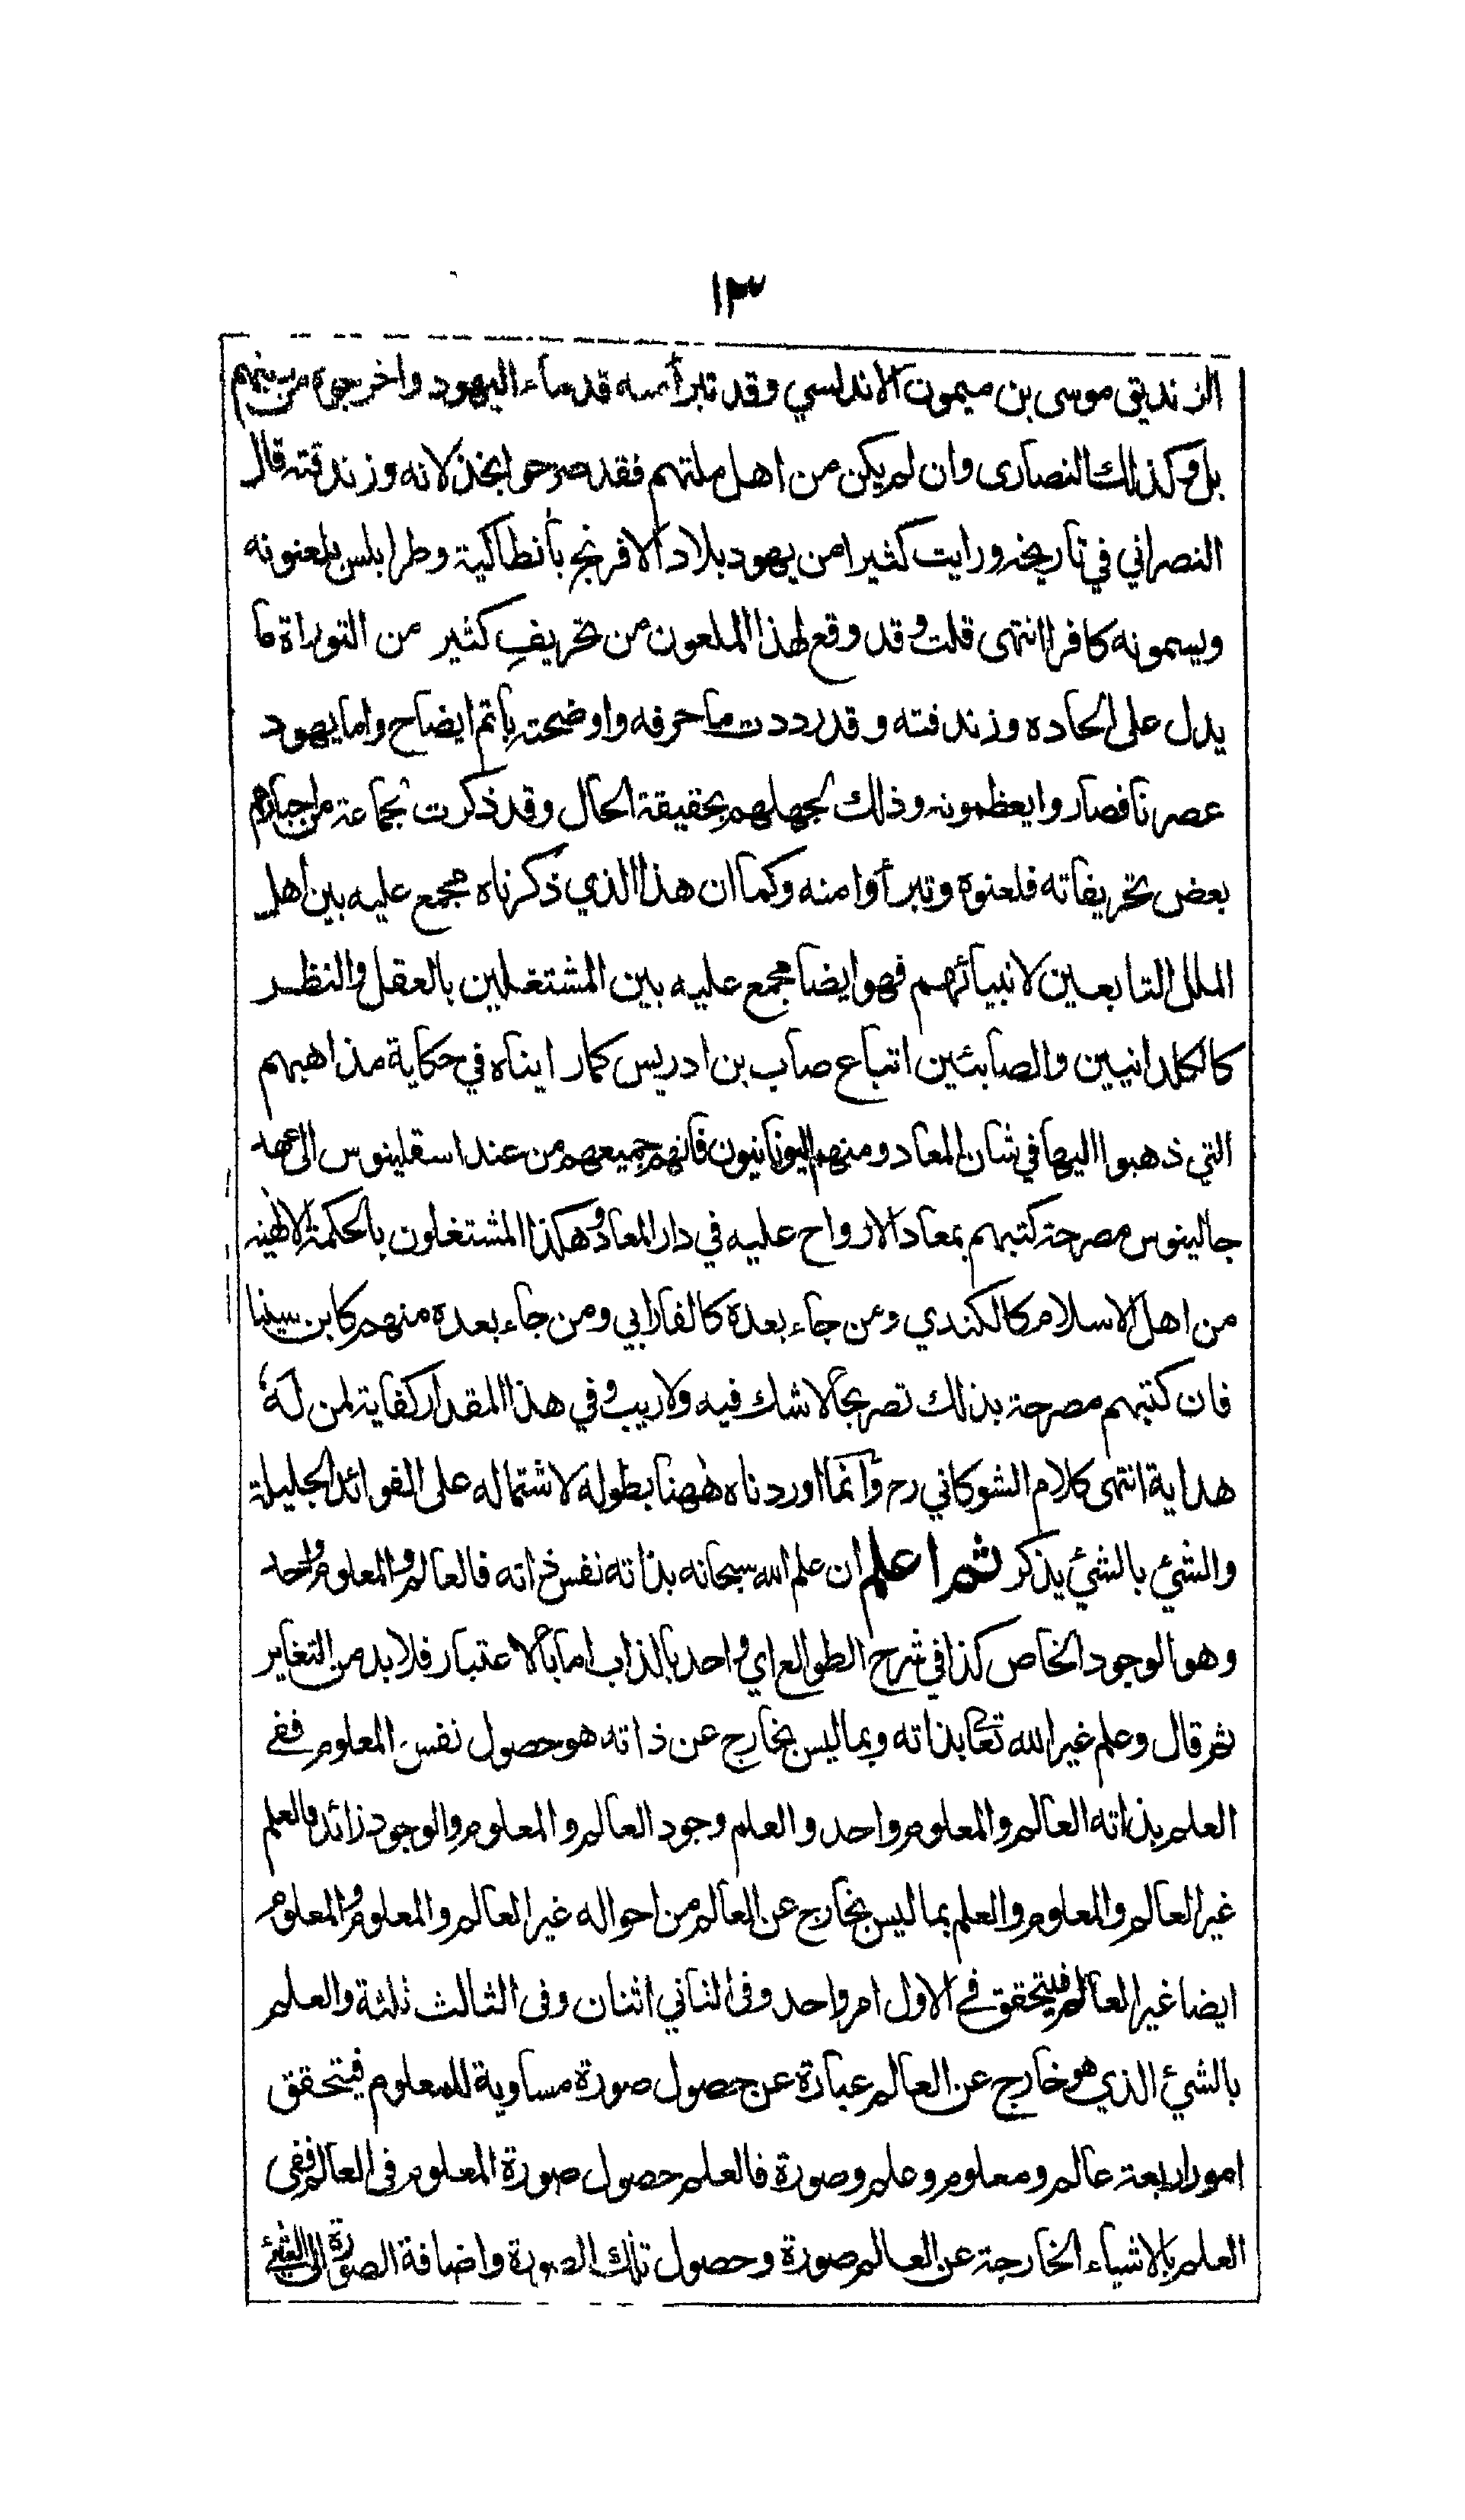 ١٣
الزنديق موسى بن ميمون الاندلسي وقد تبرأ منه قدماء اليهود واخرجوه من بينهم
بل وكذلك النصارى وان لم يكن من اهل ملتهم فقد صرحوا بخذلانه وزندقته قال
النصراني في تاريخه ورايت كثيرا من يهود بلاد الافرنج بأنطاكية وطرابلس يلعنونه
ويسمونه كافرا انتهى قلت وقد وقع لهذا الملعون من تحريفٍ كثير من التوراة ما
يدل على الحاده وزندقته وقد رددت ما حرفه واوضحته باتم ايضاح واما يهود
عصرنا فصاروا يعظمونه وذلك لجهلهم بحقيقة الحال وقد ذكرت لجماعة من احبارهم
بعض تحريفاته فلعنوه وتبرأوا منه وكما ان هذا الذي ذكرناه مجمع عليه بين أهل
الملل التابعين لانبيائهم فهو ايضا مجمع عليه بين المشتغلين بالعقل والنظر
كالكلدانيين والصابئين اتباع صاب بن ادريس كما راينا في حكاية مذاهبهم
التي ذهبوا اليها في شان المعاد ومنهم اليونانيون فانهم جميعهم من عند اسقلينوس الى عهد
جالينوس مصرحة كتبهم بمعاد الارواح عليه في دار المعاد وهكذا المشتغلون بالحكمة الالهية
من اهل الاسلام كالكندي ومن جاء بعده كالفارابي ومن جاء بعده منهم كابن سينا
فان كتبهم مصرحة بذلك تصريحًا لا شك فيه ولا ريب وفي هذا المقدار كفاية لمن له
هداية انتهى كلام الشوكاني رح وانما اوردناه ههنا بطوله لاشتماله على الفوائد الجليلة
والشئ بالشئ يذكر ثم اعلم ان علم الله سبحانه بذاته نفس ذاته فالعالم والمعلوم واحد
وهو الوجود الخاص كذا في شرح الطوالع اي واحد بالذات اما بالاعتبار فلا بد من التغاير
ثم قال وعلم غير الله تعا بذاته وبما ليس بخارج عن ذاته هو حصول نفس المعلوم ففي
العلم بذاته العالم والمعلوم واحد والعلم وجود العالم والمعلوم والوجود زائد فالعلم
غير العالم والمعلوم والعلم بما ليس بخارج عن العالم من احواله غير العالم والمعلوم والمعلوم
ايضا غير العالم فيتحقق في الاول امر واحد وفى الثاني اثنان وفى الثالث ثلثة والعلم
بالشئ الذي هو خارج عن العالم عبارة عن حصول صورة مساوية للمعلوم فيتحقق
امور اربعة عالم ومعلوم وعلم وصورة فالعلم حصول صورة المعلوم فى العالم ففى
العلم بالاشياء الخارجة عن العالم صورة وحصول تلك الصورة واضافة الصورة الى الشئ